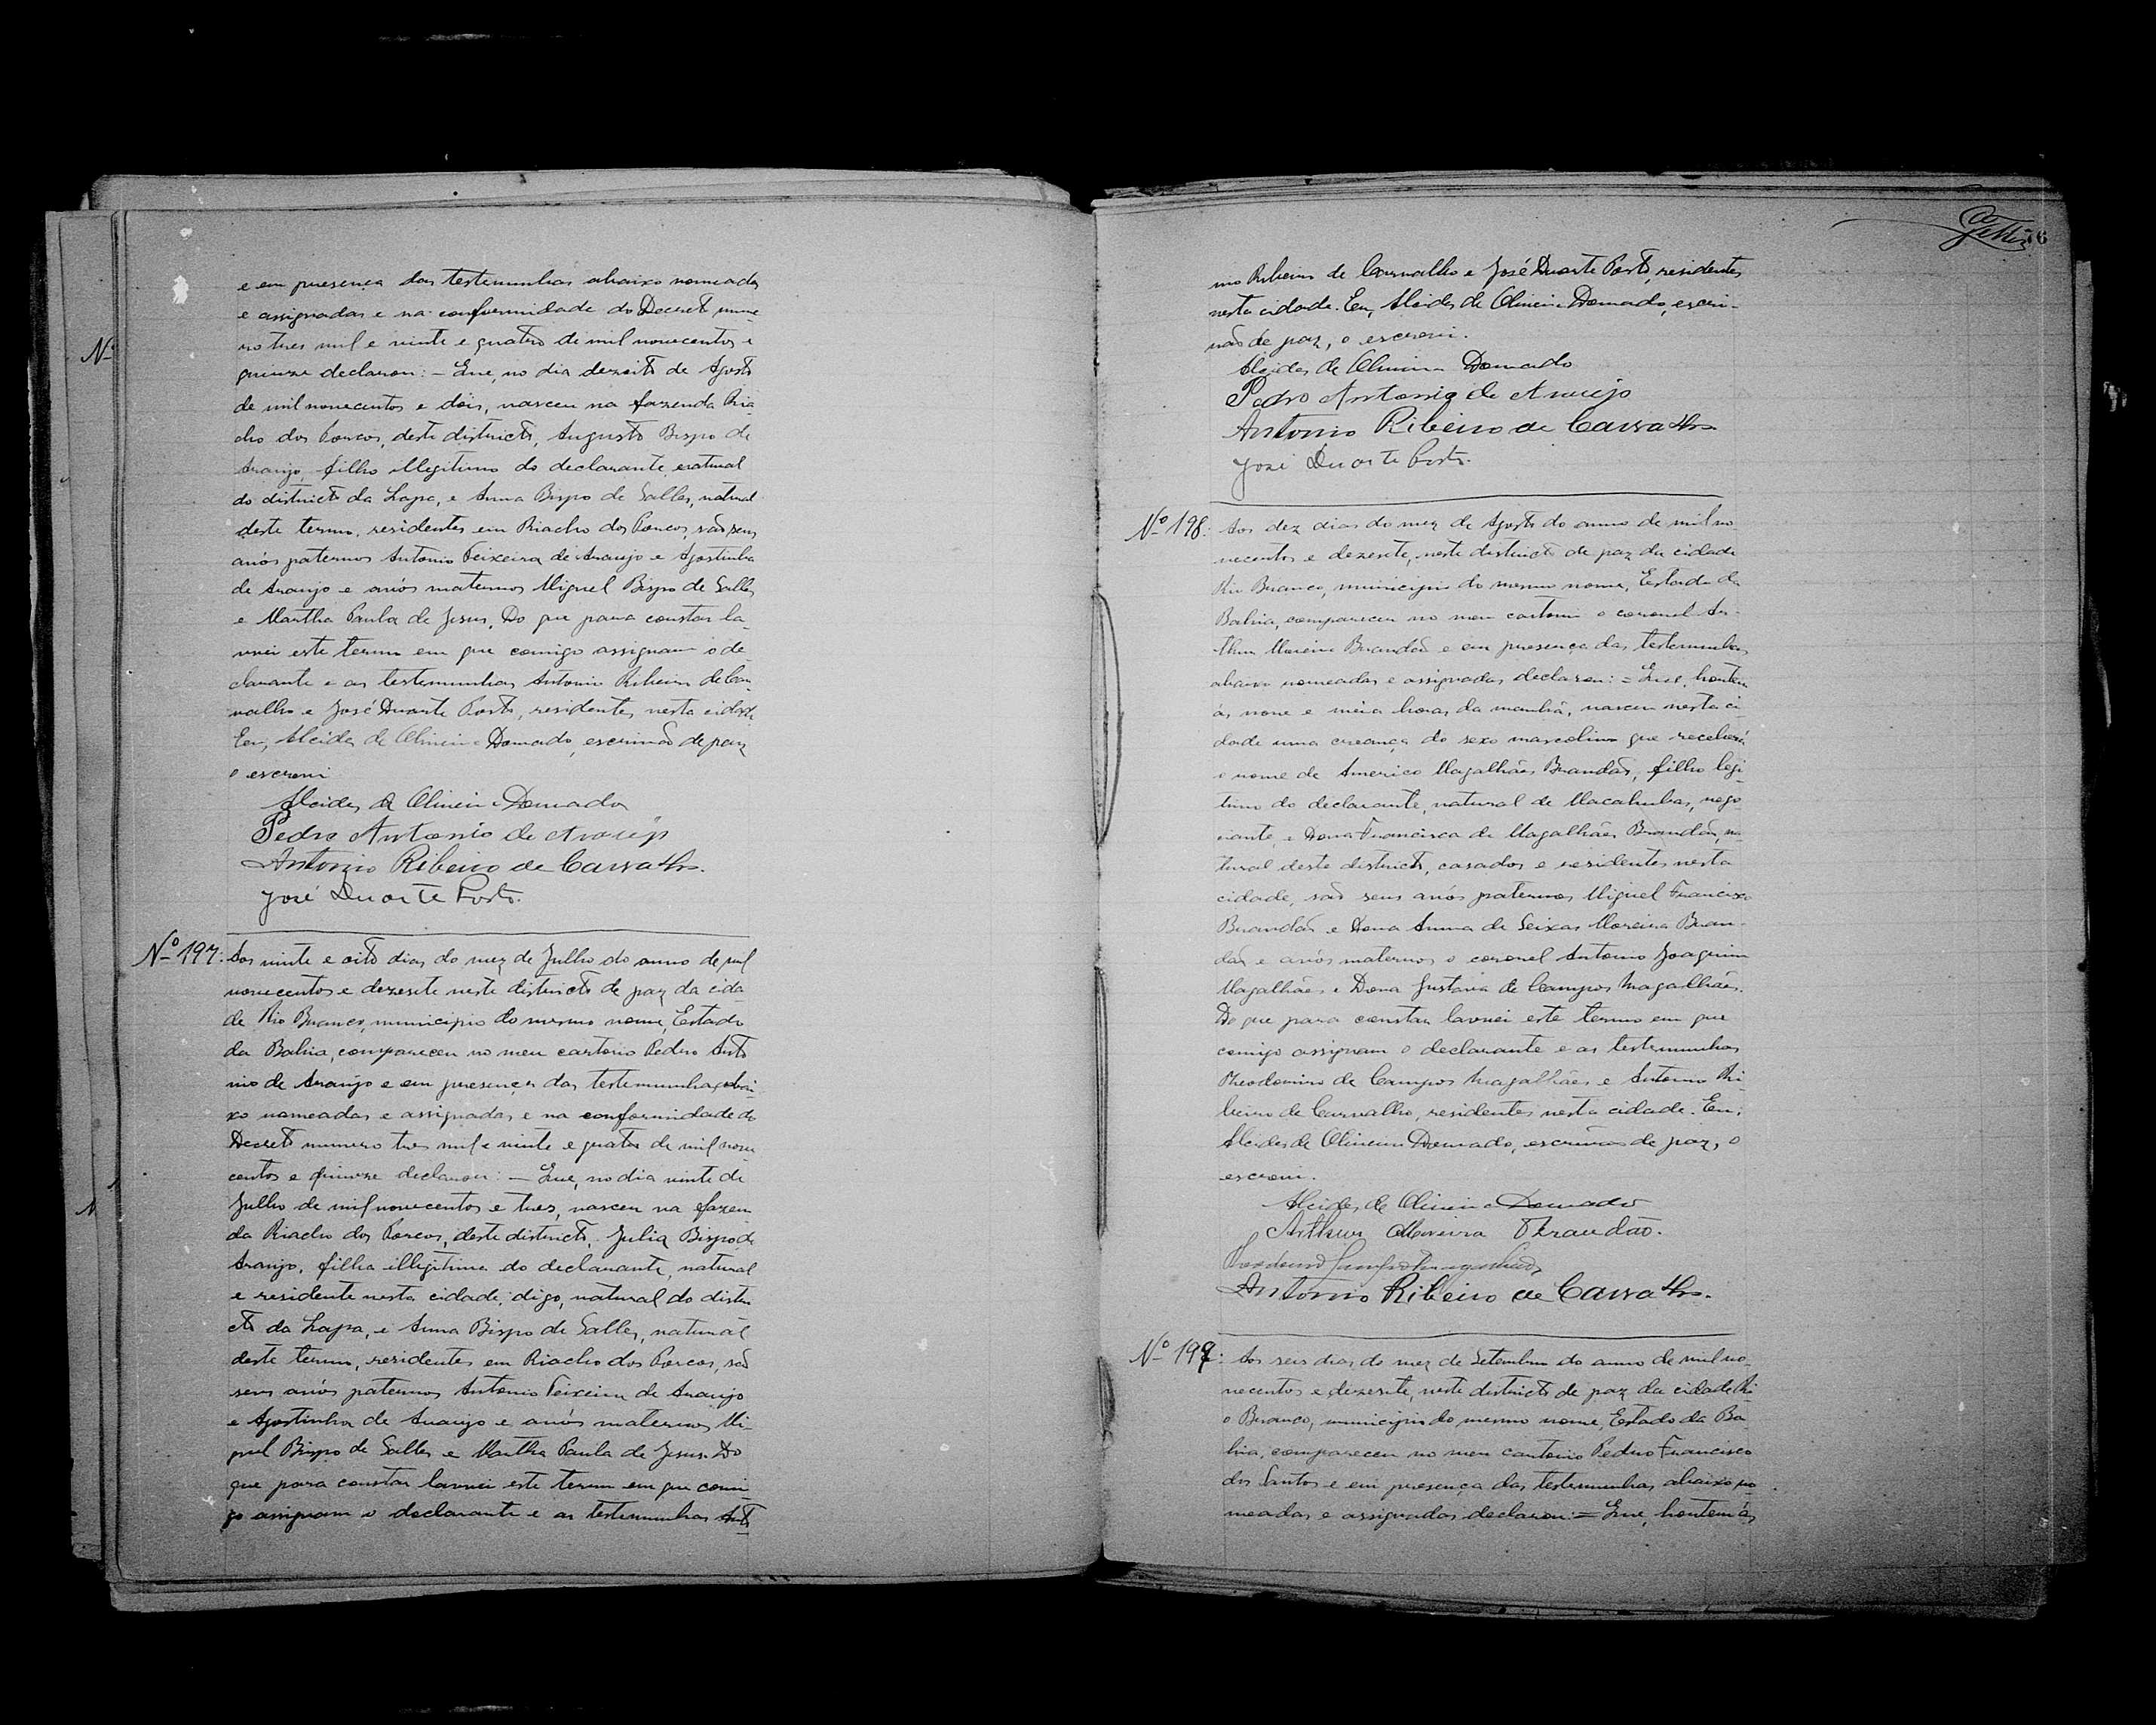 e em presença das testemunhas abaixo nomeadas
e assignadas e na conformidade do Decreto nume
ro tres mil e vinte e quatro de mil novecentos e
quinze declarou: – Que, no dia dezoito de Agosto
de mil novecentos e dois, nasceu na fazenda Ria
cho dos Porcos, deste districto, Augusto Bispo de
Araujo, filho illegitimo do declarante, natural
do districto da Lapa, e Anna Bispo de Salles, natural
deste termo, residentes em Riacho dos Porcos, são seus
avós paternos Antonio Teixeira de Araujo e Agostinha
de Araujo e avós maternos Miguel Bispo de Salles
e Martha Paula de Jesus. Do que para constar la-
vrei este termo em que comigo assignam o de-
clarante e as testemunhas Antonio Ribeiro de Car-
valho e José Duarte Porto, residentes nesta cidade
Eu, Alcides de Oliveira Dourado, escrivão de paz
o escrevi
Alcides de Oliveira Dourado
Pedro Antonio de Araujo
Antonio Ribeiro de Carvalho.
José Duarte Porto.
Nº 197: Aos vinte e oito dias do mez de Julho do anno de mil
novecentos e dezesete neste districto de paz da cida-
de Rio Branco, municipio do mesmo nome, Estado
da Bahia, compareceu no meu cartorio Pedro Anto
nio de Araujo e em presença das testemunhas abai
xo nomeadas e assignadas e na conformidade do
Decreto numero tres mil e vinte e quatro de mil nove
centos e quinze declarou: – Que, no dia vinte de
Julho de mil novecentos e tres, nasceu na fazen
da Riacho dos Porcos, deste districto, Julia Bispo de
Araujo, filha illegitima do declarante, natural
e residente nesta cidade, digo, natural do distri
cto da Lapa, e Anna Bispo de Salles, natural
deste termo, residentes em Riacho dos Porcos, são
seus avós paternos Antonio Teixeira de Araujo
e Agostinha de Araujo e avós maternos Mi-
guel Bispo de Salles e Martha Paula de Jesus. Do
que para constar lavrei este termo em que comi-
go assignam o declarante e as testemunhas Anto
76
nio Ribeiro de Carvalho e José Duarte Porto, residentes
nesta cidade. Eu, Alcides de Oliveira Dourado, escri-
vão de paz, o escrevi.
Alcides de Oliveira Dourado
Pedro Antonio de Araujo
Antonio Ribeiro de Carvalho
José Duarte Porto.
Nº 198: Aos dez dias do mez de Agosto do anno de mil no
vecentos e dezesete, neste districto de paz da cidade
Rio Branco, municipio do mesmo nome, Estado da
Bahia, compareceu no meu cartorio o coronel Ar-
thur Moreira Brandão e em presença das testemunhas
abaixo nomeadas e assignadas declarou: = Que, hontem
ás nove e meia horas da manhã, nasceu nesta ci
dade uma creança do sexo masculino que receberá
o nome de Americo Magalhães Brandão, filho legi
timo do declarante, natural de Macahubas, nego
ciante, e Dona Francisca de Magalhães Brandão, na
tural deste districto, casados e residentes nesta
cidade, são seus avós paternos Miguel Francisco
Brandão e Dona Anna de Seixas Moreira Bran-
dão e avós maternos o coronel Antonio Joaquim
Magalhães e Dona Gustava de Campos Magalhães.
Do que para constar lavrei este termo em que
comigo assignam o declarante e as testemunhas
Theodomiro de Campos Magalhães e Antonio Ri-
beiro de Carvalho, residentes nesta cidade. Eu,
Alcides de Oliveira Dourado, escrivão de paz, o
escrevi.
Alcides de Oliveira Dourado
Arthur Moreira Brandão.
Antonio Ribeiro de Carvalho.
Nº 199: Aos seis dias do mez de Setembro do anno de mil no-
vecentos e dezesete, neste districto de paz da cidade Ri
o Branco, municipio do mesmo nome, Estado da Ba
hia, compareceu no meu cartorio Pedro Francisco
dos Santos e em presença das testemunhas abaixo no
meadas e assignadas declarou: = Que, hontem ás